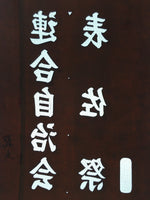 連合自治会
表佐祭